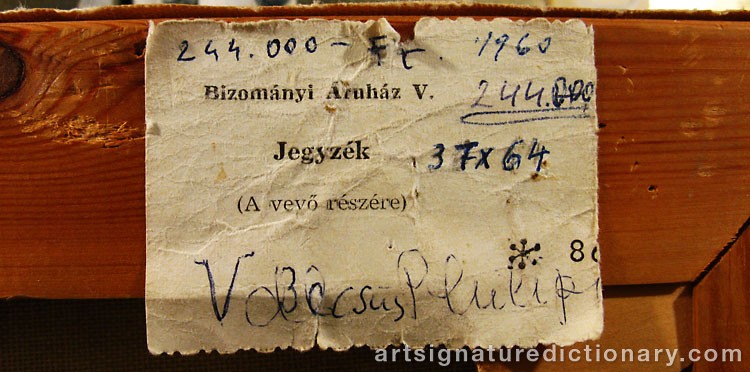 244.000 - Ft. 1960
Bizományi Áruház V. 244.000
Jegyzék 37x64
(A vevő részére)
8
V
artsignaturedictionary.com